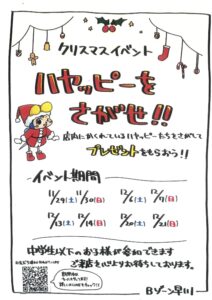 クリスマスイベント
ハヤッピーを
さがせ!!
店内にかくれているハヤッピーたちをさがして
プレゼントをもらおう!!
イベント期間
11/29(土) 11/30(日) 12/6(土) 12/7(日)
12/13(土) 12/14(日) 12/20(土) 12/21(日)
中学生以下のお子様が参加できます
ご来店を心よりお待ちしております。
Bゾーン早川